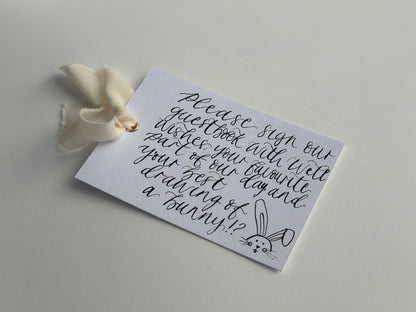 please sign our
guestbook with well
wishes your favourite
part of our day and
your best
drawing of
a bunny!?